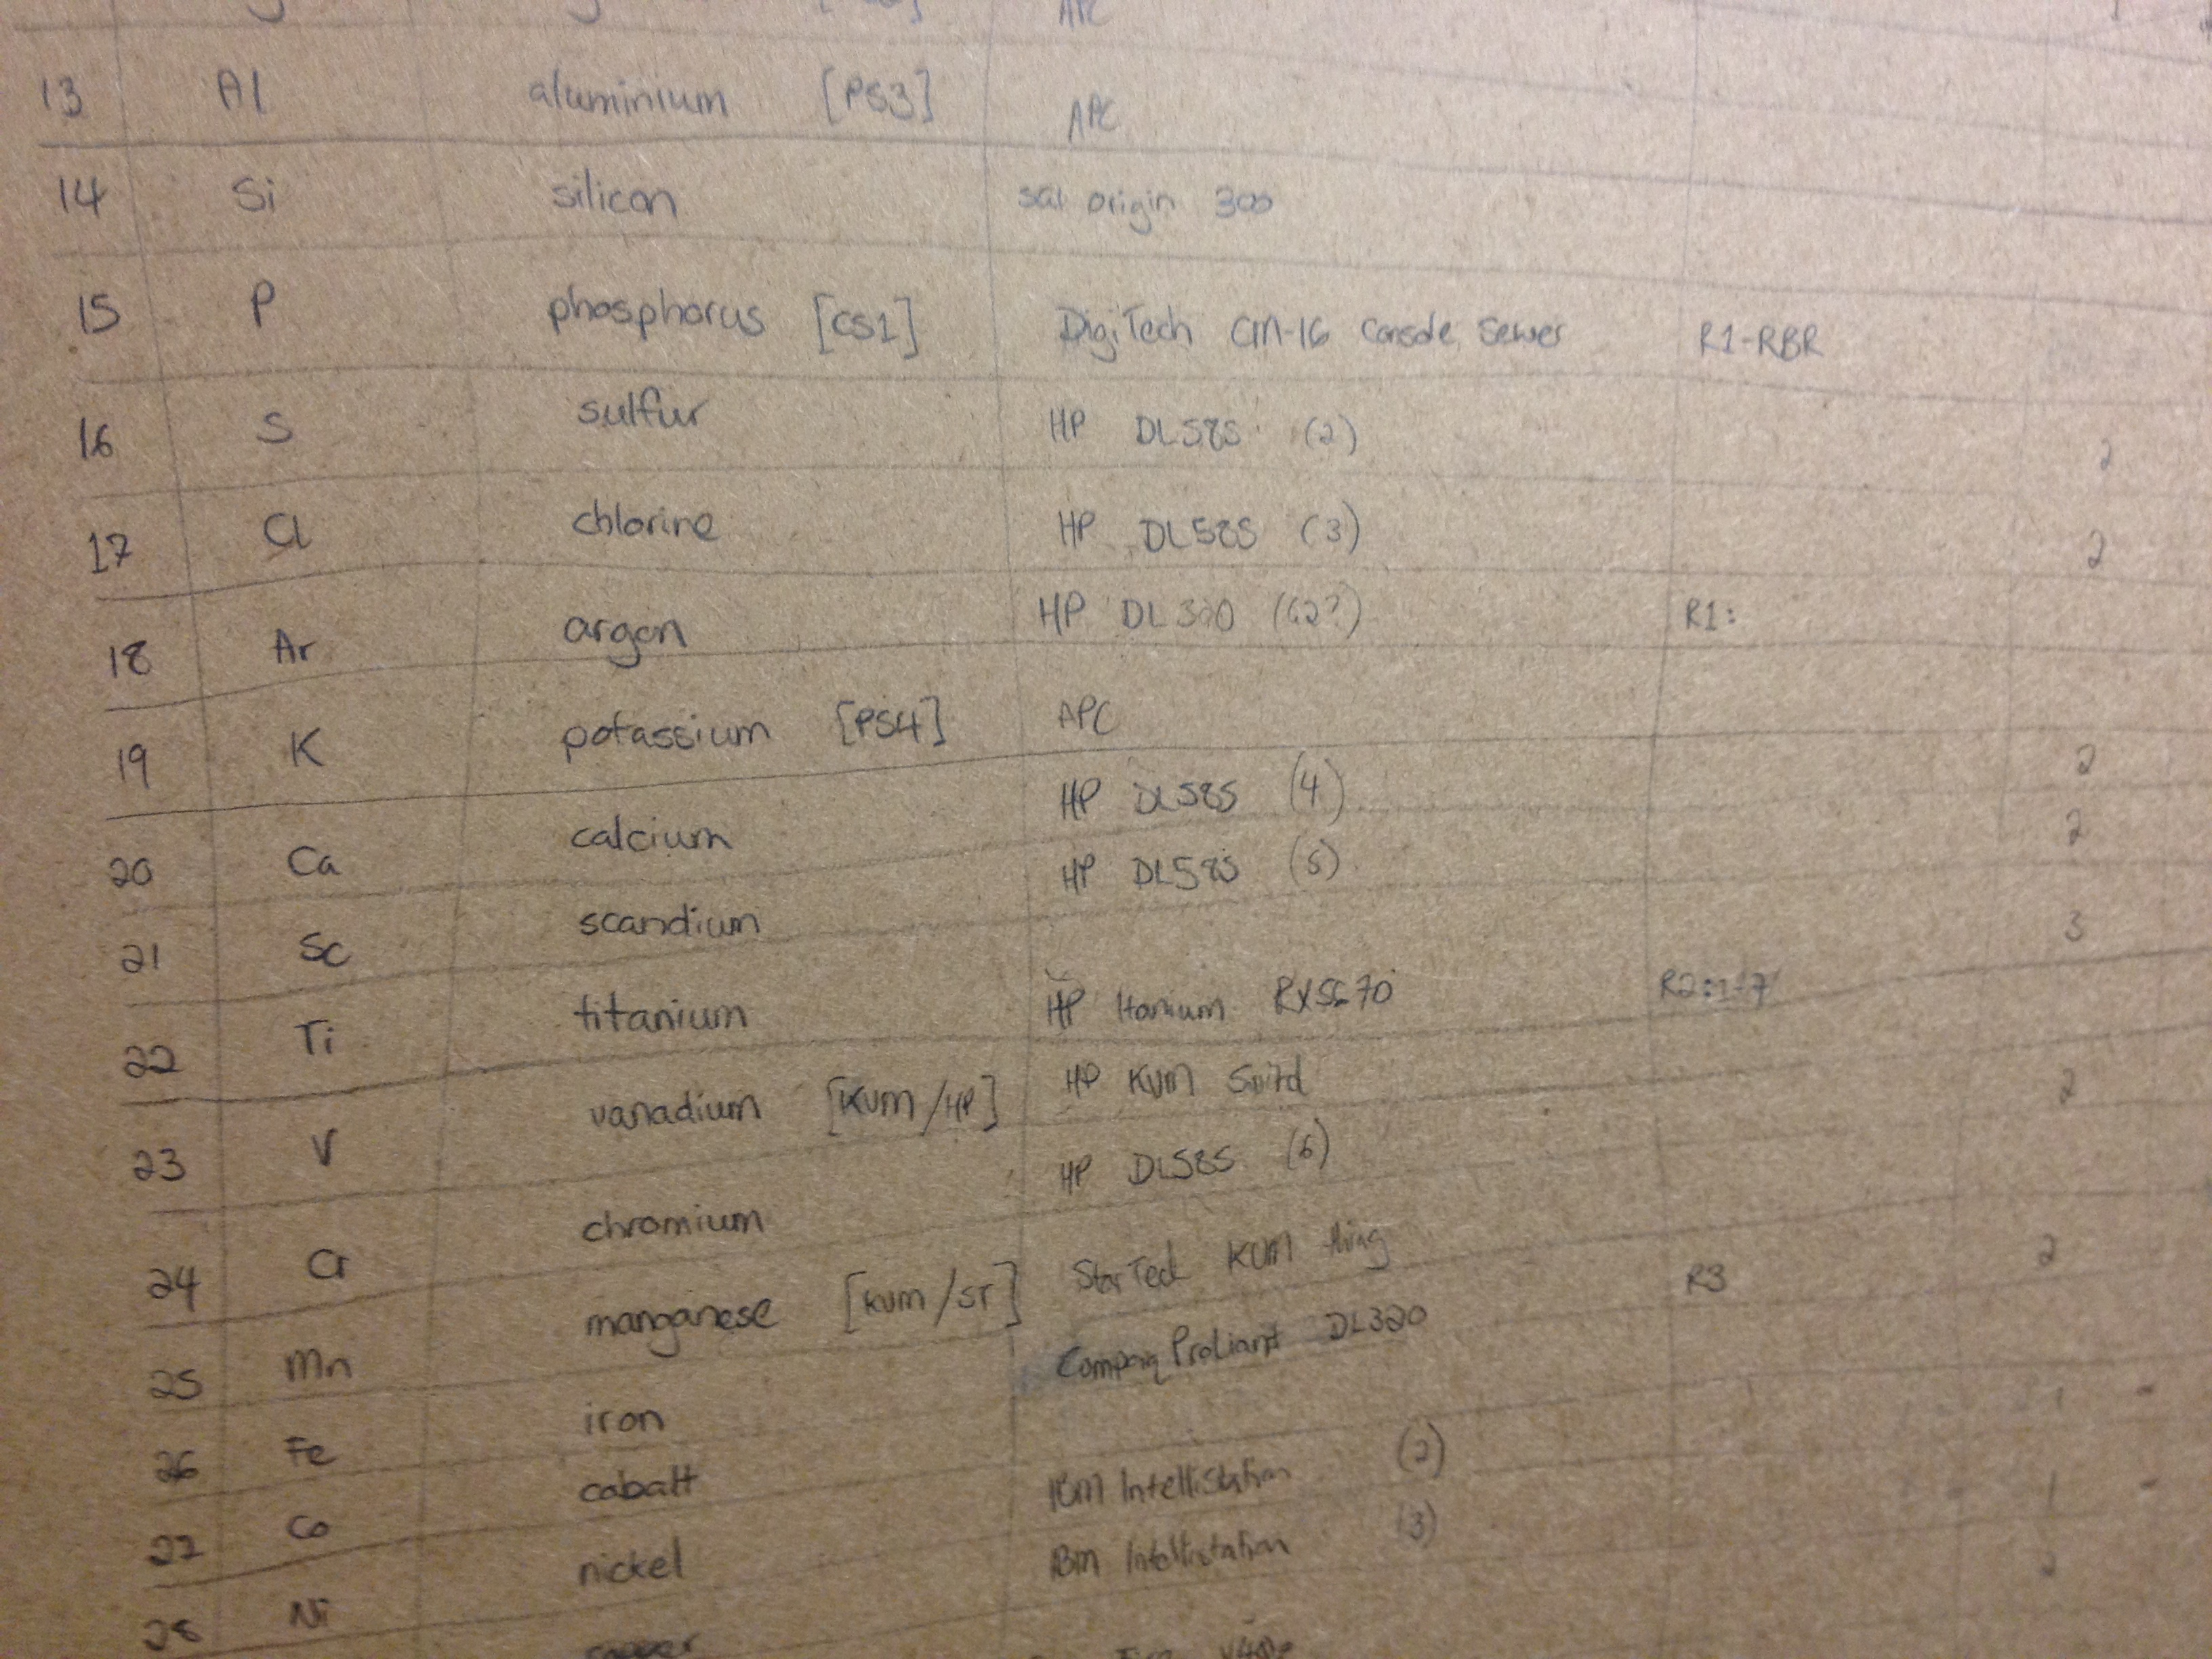 APC
13 Al aluminium [PS3] APC
14 Si silicon origin 300
15 P phosphorus [CS1] DigiTech CM-16 Console Server R1-RBR
16 S sulfur HP DL585 (2) 2
17 Cl chlorine HP DL585 (3) 2
18 Ar argon HP DL320 (G2?) R1:
19 K potassium [PS4] APC
20 Ca calcium HP DL585 (4) 2
21 Sc scandium HP DL585 (5) 2
22 Ti titanium HP Itanium RX5670 R2:1-7 3
23 V vanadium [KVM/HP] HP KVM
24 Cr chromium HP DL585 (6) 2
25 Mn manganese [KVM/ST] StarTech KVM thing
26 Fe iron Compaq ProLiant DL320 R3 2
27 Co cobalt IBM Intellistation (2) 1 -
28 Ni nickel IBM Intellistation (3) 1 -
copper 2